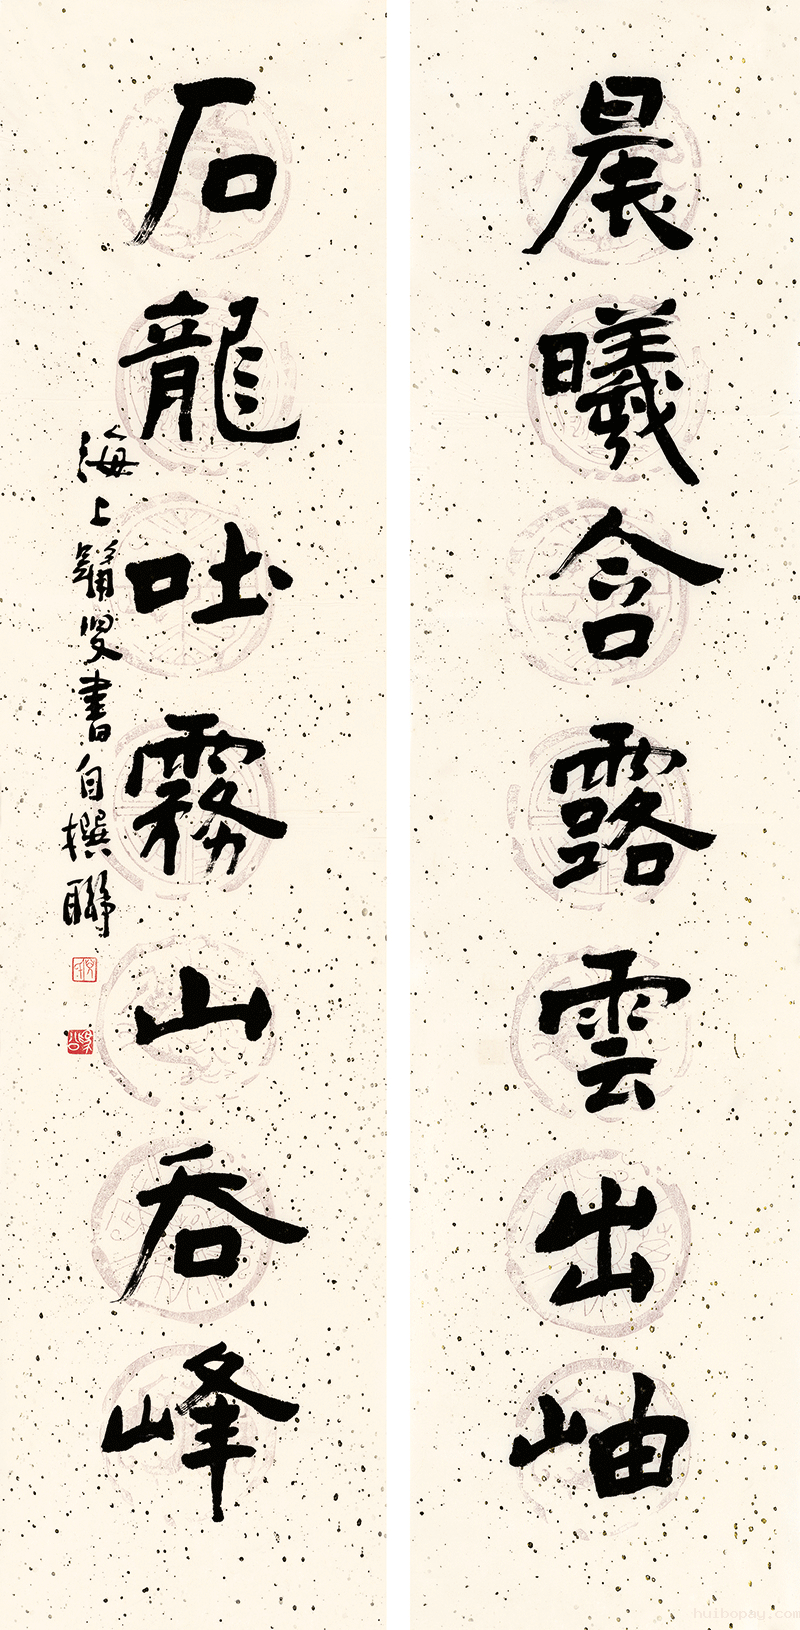 晨曦含露雲出岫
石龍吐霧山吞峰
海上鏽叟書自撰聯
huibopay.com